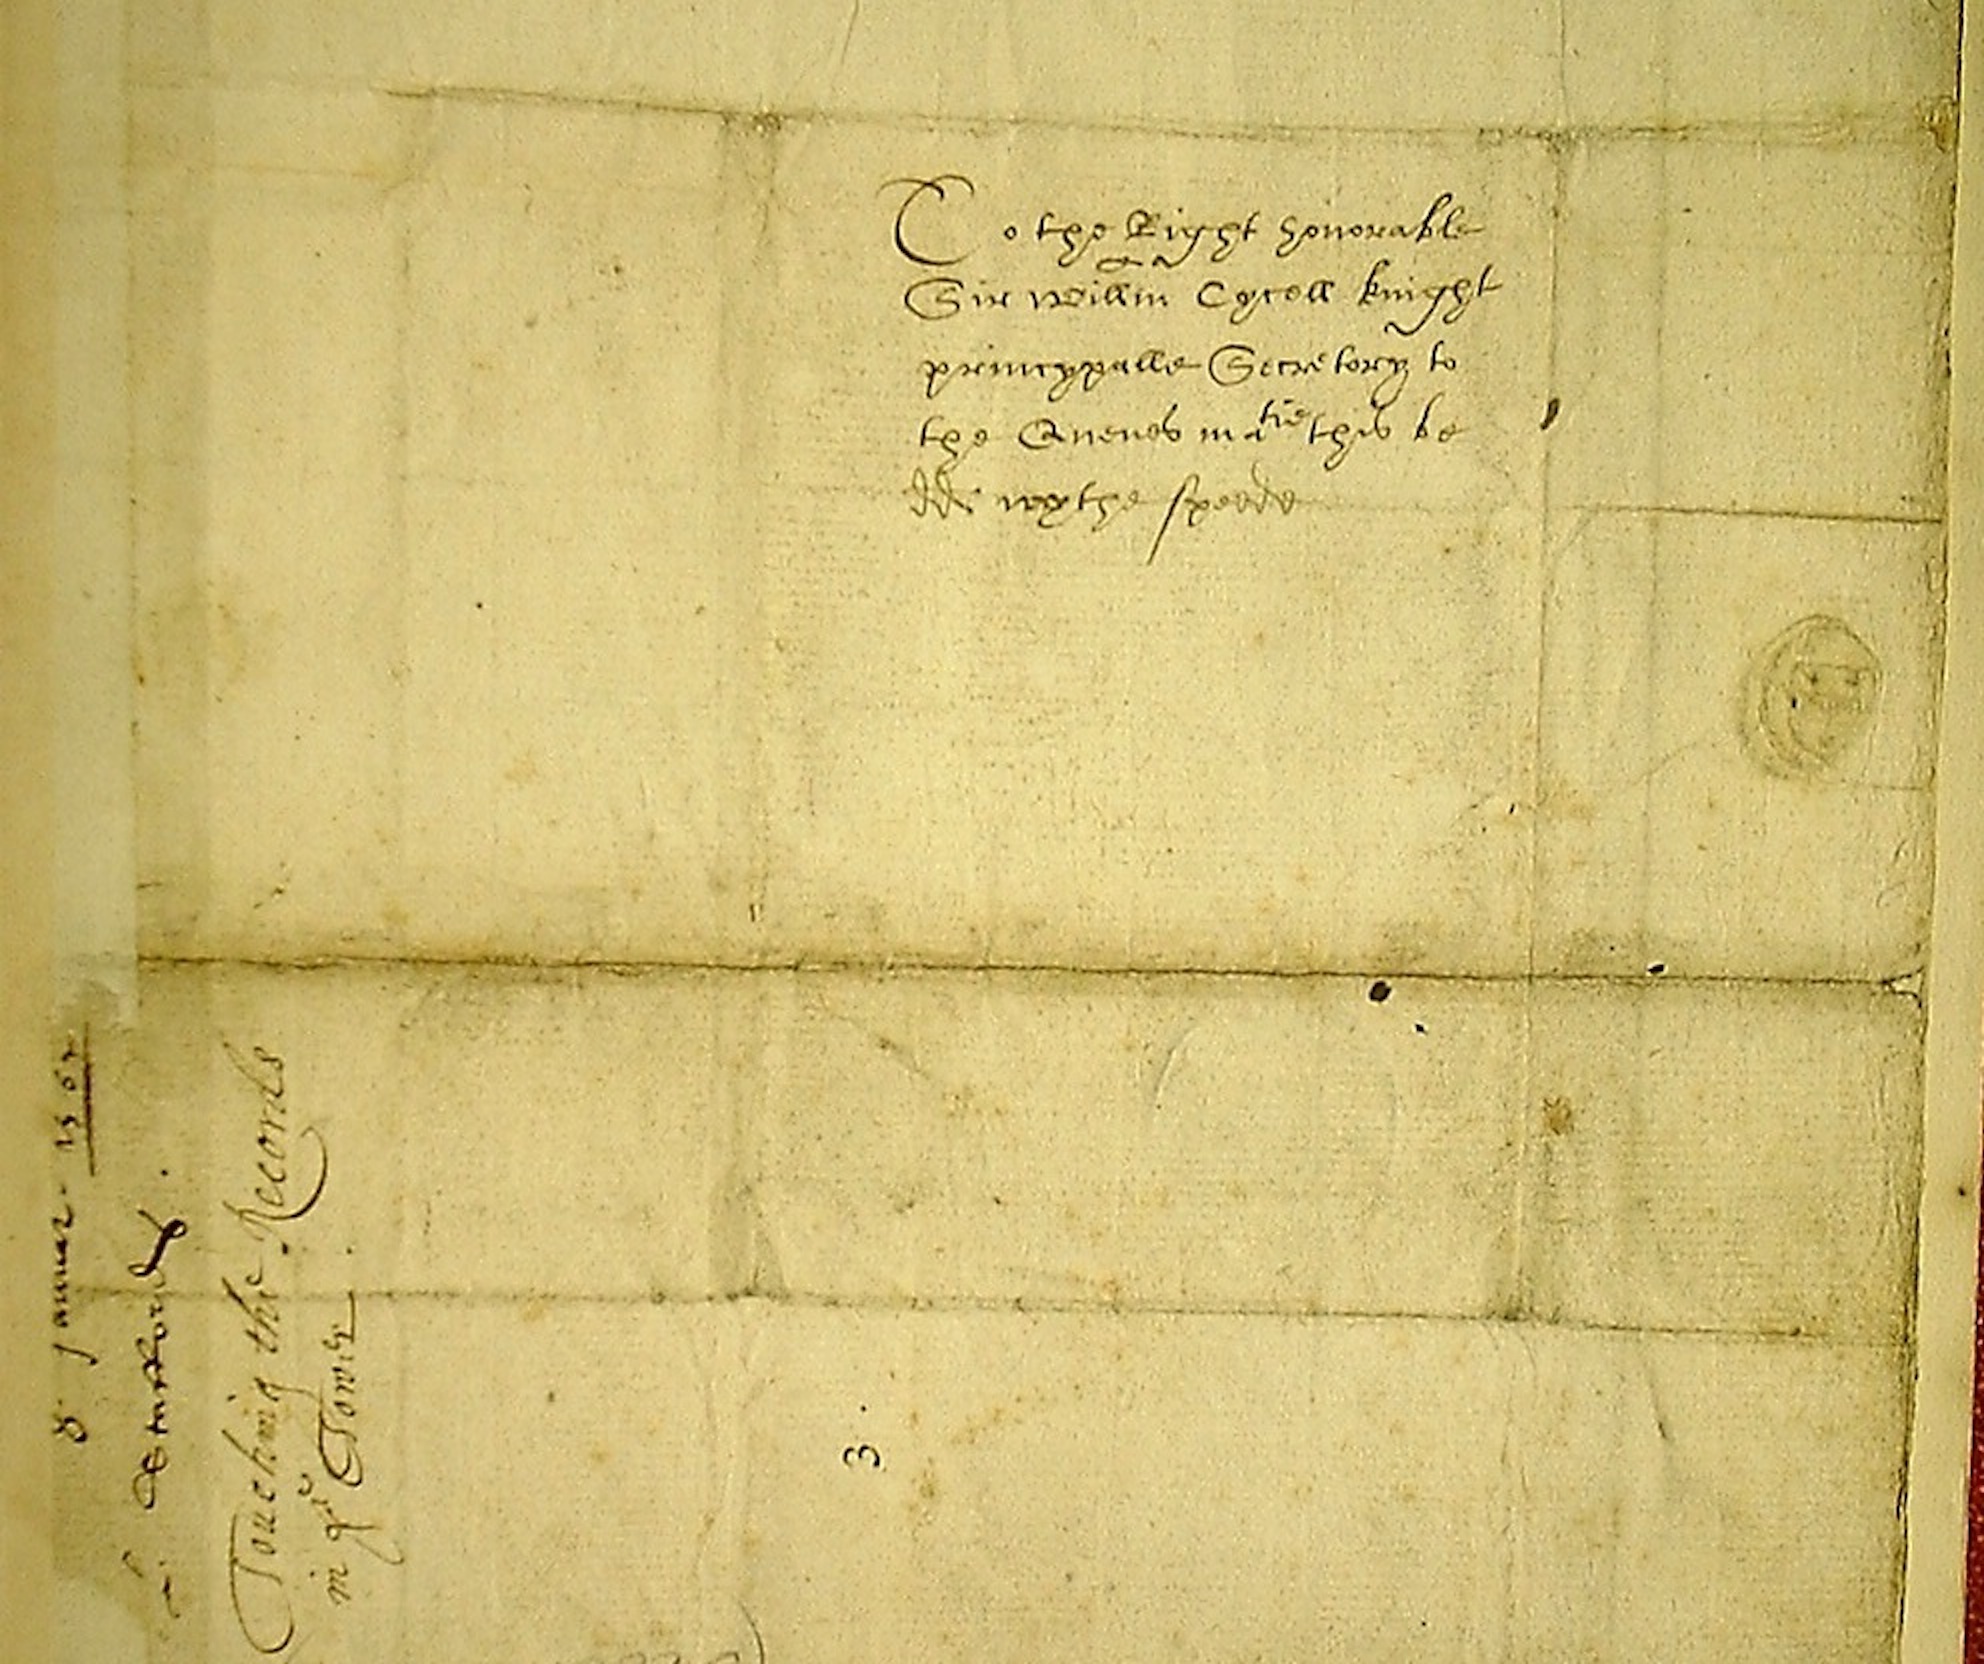 To the Right honorable
Sir Willm Cycell knight
pryncypalle Secretory to
the Quenes matie this be
dd wythe speede
8 Januar 1567
Touching the Records
in ye Tower.
3.